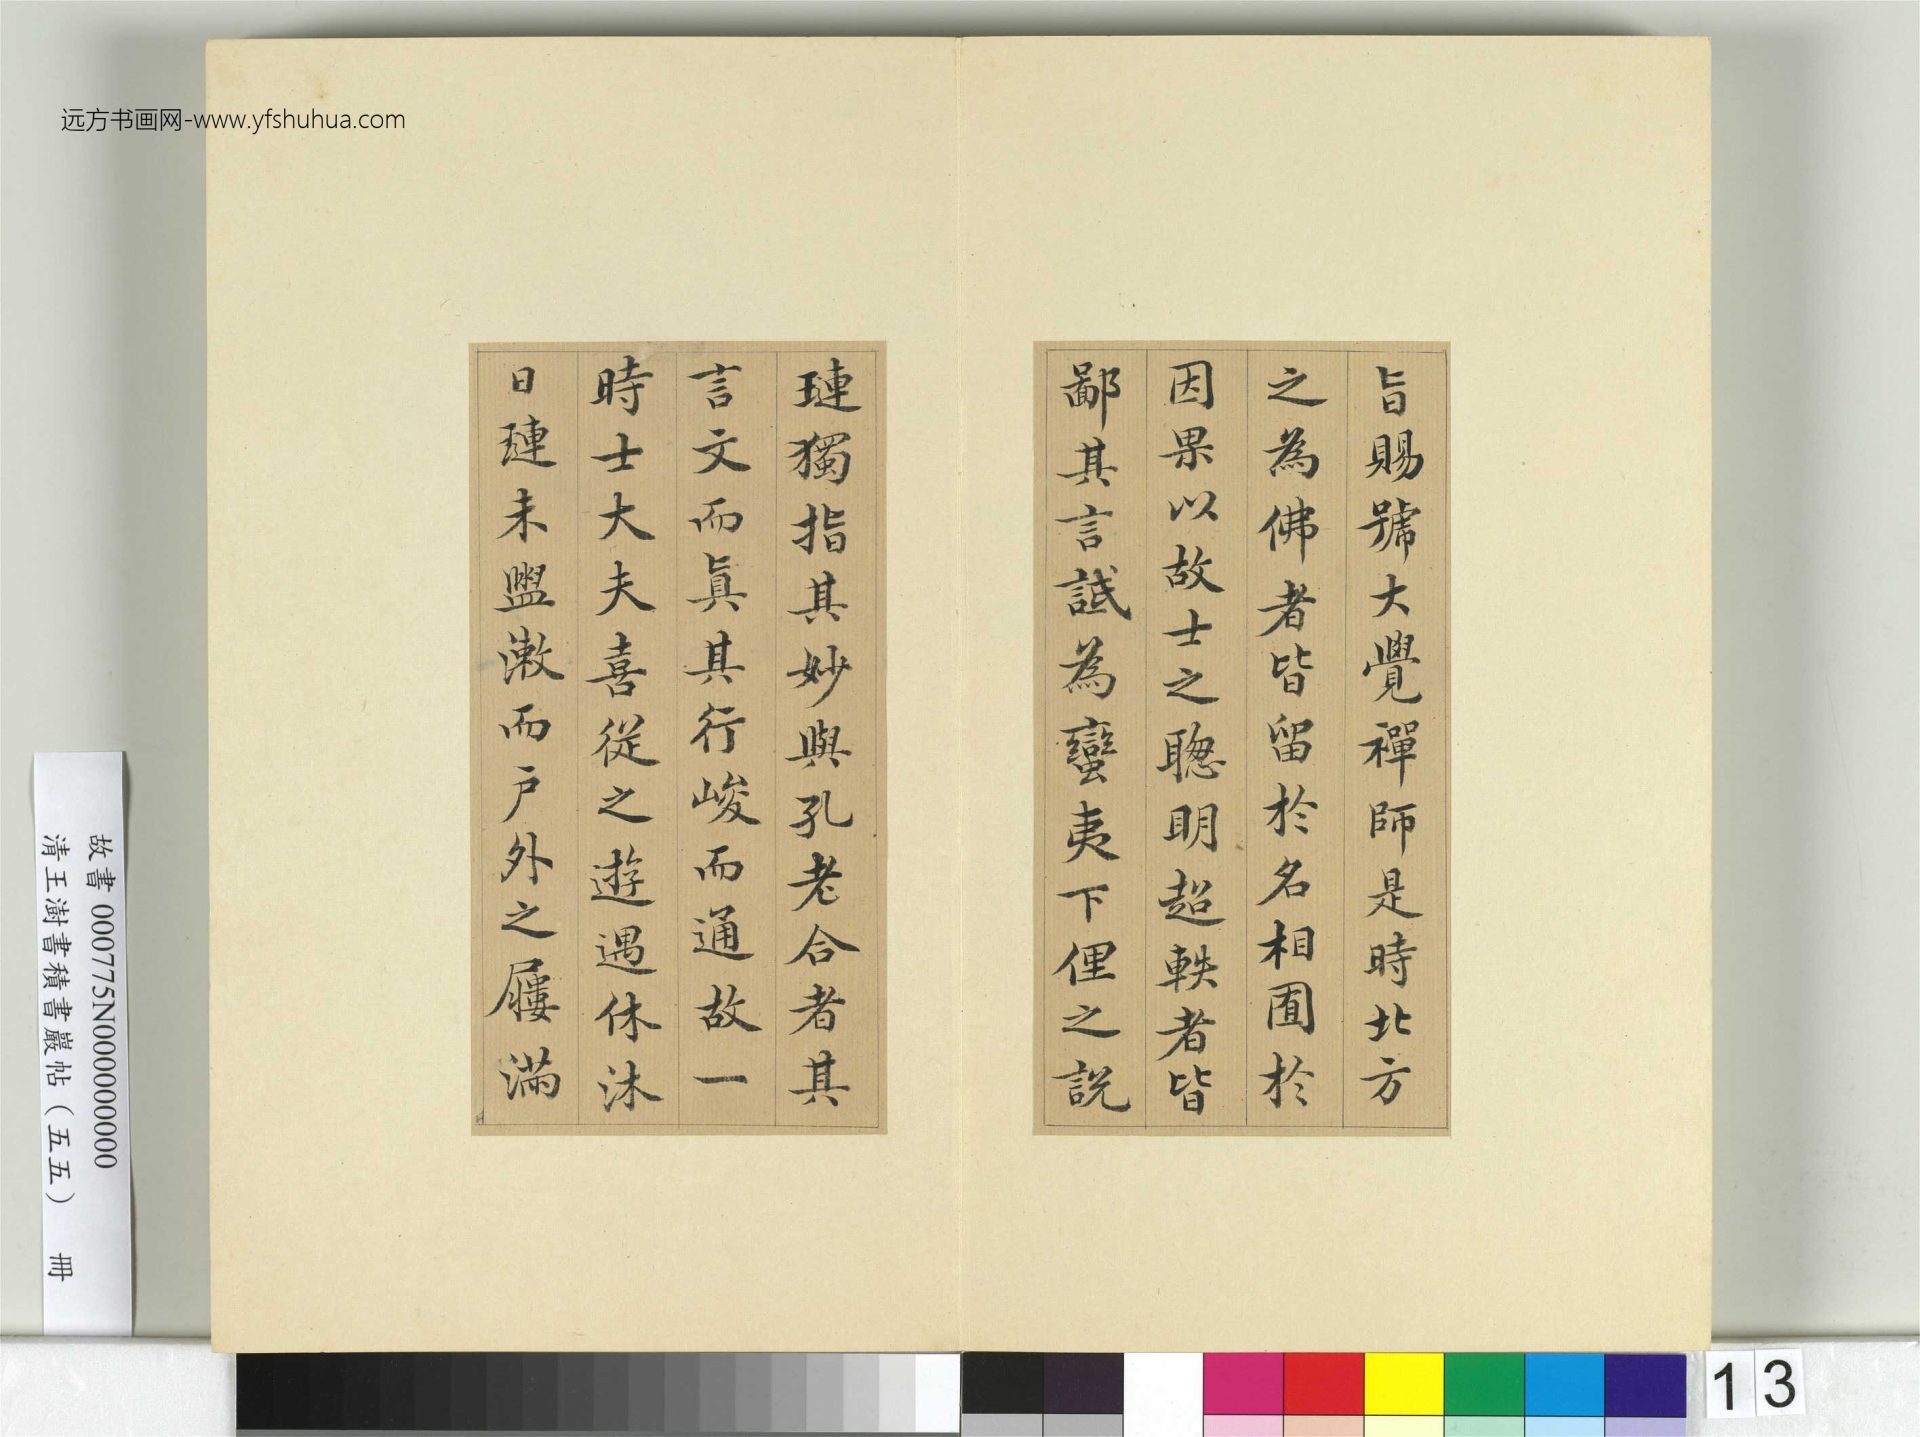 远方书画网-www.yfshuhua.com
旨賜號大覺禪師是時北方
之為佛者皆留於名相囿於
因果以故士之聰明超軼者皆
鄙其言詆為蠻夷下俚之說
璉獨指其妙與孔老合者其
言文而真其行峻而通故一
時士大夫喜從之遊遇休沐
日璉未盥漱而戶外之屨滿
故書 000775N000000000
清王澍書積書巖帖（五五） 冊
13